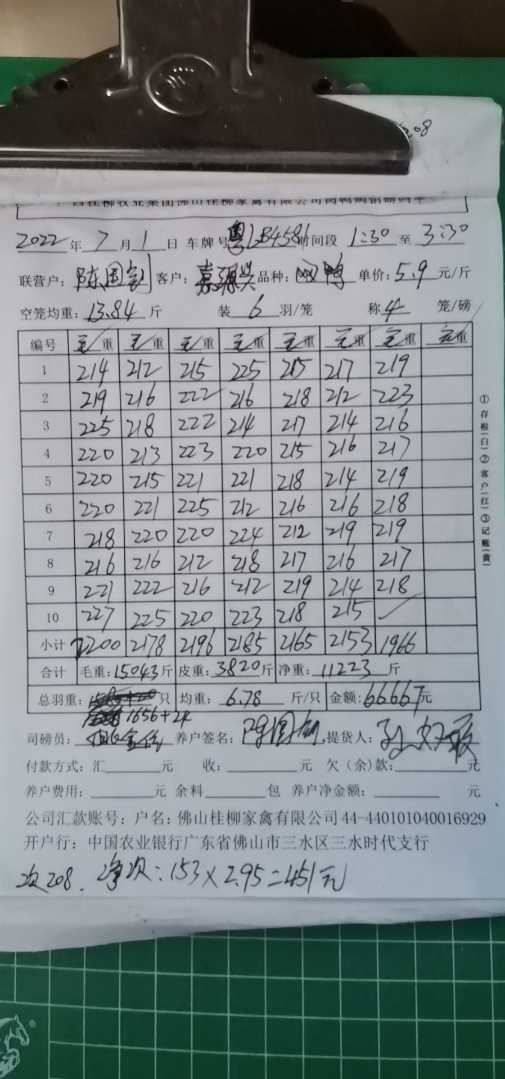 .08
2022年7月1日 车牌号粤LB4581时间段1:30至3:30
联营户: 客户: 品种: 鸭 单价:5.9元/斤
空笼均重:13.84斤 装6羽/笼 称4笼/磅
编号 毛/重 毛/重 毛/重 毛/重 毛/重 毛/重 毛/重 毛/重
1 214 212 215 225 215 217 219
2 219 216 222 216 218 212 223
3 225 218 222 214 217 214 216
4 220 213 223 220 215 216 217
5 220 215 221 221 218 214 219
6 220 221 225 212 216 216 218
7 218 220 220 224 212 219 219
8 216 216 212 218 217 216 217
9 221 222 216 212 219 214 218
10 227 225 220 223 218 215
小计 2200 2178 2196 2185 2165 2153 1966
合计 毛重:15043斤 皮重:3820斤 净重:11223斤
总羽重: 只 均重:6.78斤/只 金额:66667元
1656+24
司磅员: 养户签名: 提货人:
付款方式:汇 元 收: 元 欠(余)款: 元
养户费用: 元 余料 包 养户净金额: 元
公司汇款账号:户名:佛山桂柳家禽有限公司44-440101040016929
开户行:中国农业银行广东省佛山市三水区三水时代支行
次208. 净次:153×2.95=451元
①存根(白)②客户(红)③记账(黄)